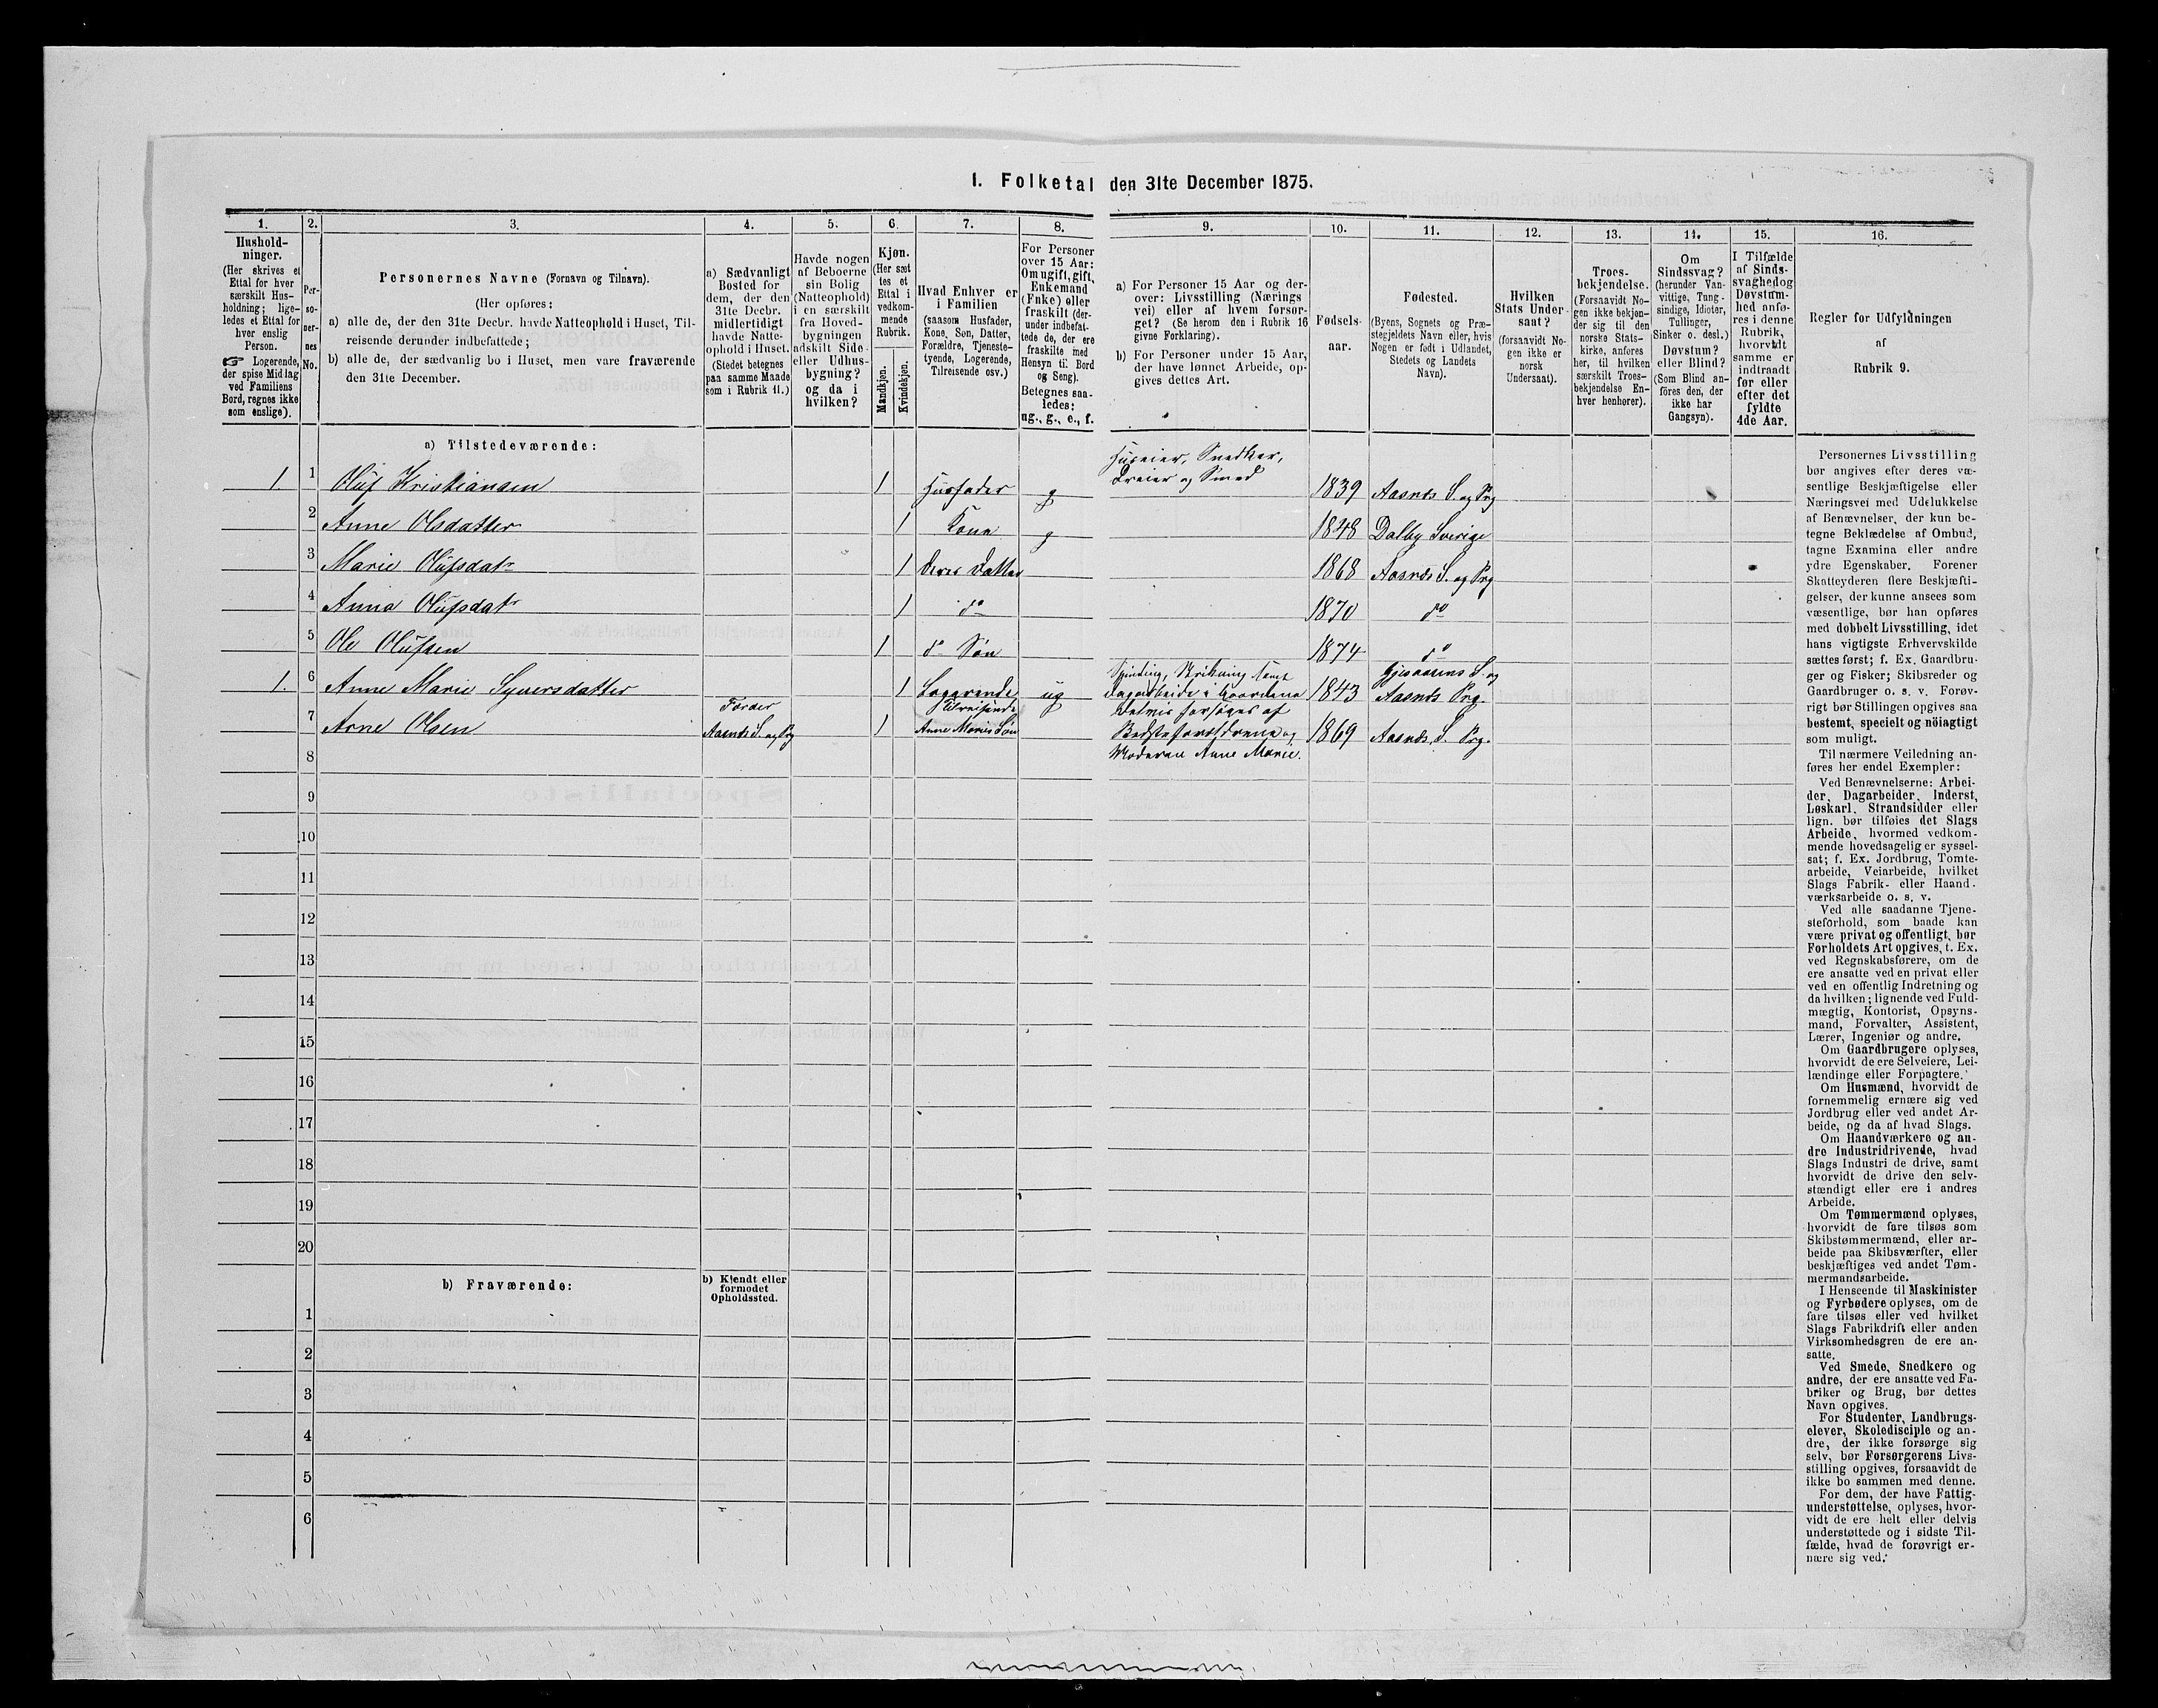 1. Folketal den 31te December 1875.
1.
Hushold-
ninger.
(Her skrives et
Ettal for hver
særskilt Hus-
holdning; lige-
ledes et Ettal for
hver enslig
Person.
☞ Logerende,
der spise Middag
ved Familiens
Bord, regnes ikke
som enslige).
2.
Per-
so-
ner-
nes
No.
3.
Personernes Navne (Fornavn og Tilnavn).
(Her opføres:
a) alle de, der den 31te Decbr. havde Natteophold i Huset, Til-
reisende derunder indbefattede;
b) alle de, der sædvanlig bo i Huset, men vare fraværende
den 31te December.
4.
a) Sædvanligt
Bosted for
dem, der den
31te Decbr.
midlertidigt
havde Natte-
ophold i Huset.
(Stedet betegnes
paa samme Maade
som i Rubrik 11.)
5.
Havde nogen
af Beboerne
sin Bolig
(Natteophold)
i en særskilt
fra Hoved-
bygningen
adskilt Side-
eller Udhus-
bygning?
og da i
hvilken?
6.
Kjøn.
(Her sæt
tes et
Ettal i
vedkom-
mende
Rubrik.
Mandkjøn.
Kvindekjøn.
7.
Hvad Enhver er
i Familien
(saasom Husfader,
Kone, Søn, Datter,
Forældre, Tjeneste-
tyende, Logerende,
Tilreisende osv.)
8.
For Personer
over 15 Aar:
Om ugift, gift,
Enkemand
(Enke) eller
fraskilt (der-
under indbefat-
tede de, der ere
fraskilte med
Hensyn til Bord
og Seng).
Betegnes saa-
ledes:
ug., g., e., f.
9.
a) For Personer 15 Aar og der-
over: Livsstilling (Nærings
vei) eller af hvem forsør-
get? (Se herom den i Rubrik 16
givne Forklaring).
b) For Personer under 15 Aar,
der have lønnet Arbeide, op-
gives dettes Art.
10.
Fødsels-
aar.
11.
Fødested.
(Byens, Sognets og Præ-
stegjeldets Navn eller, hvis
Nogen er født i Udlandet,
Stedets og Landets
Navn).
12.
Hvilken
Stats Under-
saat?
(forsaavidt No-
gen ikke er
norsk
Undersaat).
13.
Troes-
bekjendelse.
(Forsaavidt No-
gen ikke bekjen-
der sig til den
norske Stats-
kirke, anføres
her, til hvilken
særskilt Troes-
bekjendelse En-
hver henhører).
14.
Om
Sindssvag?
(herunder Van-
vittige, Tung-
sindige, Idioter,
Tullinger,
Sinker o. desl.)
Døvstum?
eller Blind?
(Som Blind an-
föres den, der
ikke har
Gangsyn).
15.
I Tilfælde
af Sinds-
svaghed og
Døvstum-
hed anfø-
res i denne
Rubrik,
hvorvidt
samme er
indtraadt
før eller
efter det
fyldte
4de Aar.
16.
Regler for Udfyldningen
af
Rubrik 9.
a) Tilstedeværende:
Huseier, Snedker,
Dreier og Smed
1 1 Oluf Kristiansen 1 Husfader g 1839 Aasnes S. og Prg
2 Anne Olsdatter 1 Kone g 1848 Dalby Sverige
3 Marie Olufsdatr 1 Deres Datter 1868 Aasnes S. og Prg
4 Anna Olufsdatr 1 do 1870 do
5 Ole Olufsen 1 do Søn 1874 do
Spinding, Strikning samt Gjesaasens S. og
1. 6 Anne Marie Syversdatter 1 Logerende ug Dagarbeide i Gaardene 1843 Aasnes Prg.
Førder Tilreisende Delvis forsørges af
7 Arne Olsen Aasnes S. og Prg 1 Anne Maries Søn Bedsteforældrene og 1869 Aasnes, S. Prg.
Moderen Anne Marie.
8
9
10
11
12
13
14
15
16
17
18
19
20
b) Fraværende:
b) Kjendt eller
formodet
Opholdssted.
1
2
3
4
5
6
Personernes Livsstilling
bør angives efter deres væ-
sentlige Beskjæftigelse eller
Næringsvei med Udelukkelse
af Benævnelser, der kun be-
tegne Beklædelse af Ombud,
tagne Examina eller andre
ydre Egenskaber. Forener
Skatteyderen flere Beskjæfti-
gelser, der kunne ansees som
væsentlige, bør han opføres
med dobbelt Livsstilling, idet
hans vigtigste Erhvervskilde
sættes først; f. Ex. Gaardbru-
ger og Fisker; Skibsreder og
Gaardbruger o. s. v. Forøv-
rigt bør Stillingen opgives saa
bestemt, specielt og nöiagtigt
som muligt.
Til nærmere Veiledning an-
føres her endel Exempler:
Ved Benævnelserne: Arbei-
der, Dagarbeider, Inderst,
Løskarl, Strandsidder eller
lign. bør tilføies det Slags
Arbeide, hvormed vedkom-
mende hovedsagelig er syssel-
sat; f. Ex. Jordbrug, Tomte-
arbeide, Veiarbeide, hvilket
Slags Fabrik- eller Haand-
værksarbeide o. s. v.
Ved alle saadanne Tjene-
steforhold, som baade kan
være privat og offentligt, bør
Forholdets Art opgives, t. Ex.
ved Regnskabsførere, om de
ere ansatte ved en privat eller
ved en offentlig Indretning og
da hvilken; lignende ved Fuld-
mægtig, Kontorist, Opsyns-
mand, Forvalter, Assistent,
Lærer, Ingeniør og andre.
Om Gaardbrugere oplyses,
hvorvidt de ere Selveiere, Lei-
lændinge eller Forpagtere.
Om Husmænd, hvorvidt de
fornemmelig ernære sig ved
Jordbrug eller ved andet Ar-
beide, og da af hvad Slags.
Om Haandværkere og an-
dre Industridrivende, hvad
Slags Industri de drive, samt
hvorvidt de drive den selv-
stændigt eller ere i andres
Arbeide.
Om Tømmermænd oplyses,
hvorvidt de fare tilsøs som
Skibstømmermænd, eller ar-
beide paa Skibsværfter, eller
beskjæftiges ved andet Tøm-
mermandsarbeide.
I Henseende til Maskinister
og Fyrbødere oplyses, om de
fare tilsøs eller ved hvilket
Slags Fabrikdrift eller anden
Virksomhedsgren de ere an-
satte.
Ved Smede, Snedkere og
andre, der ere ansatte ved Fa-
briker og Brug, bør dettes
Navn opgives.
For Studenter, Landbrugs-
elever, Skoledisciple og an-
dre, der ikke forsørge sig
selv, bør Forsørgerens Livs-
stilling opgives, forsaavidt de
ikke bo sammen med denne.
For dem, der have Fattig-
understøttelse, oplyses, hvor-
vidt de ere helt eller delvis
understøttede og i sidste Til-
fælde, hvad de forøvrigt er-
nære sig ved.